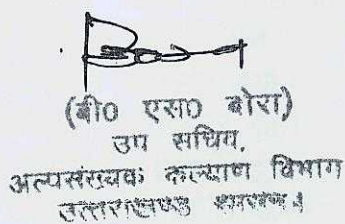 (बी0 एस0 बोरा)
उप सचिव,
अल्पसंख्यक कल्याण विभाग
उत्तराखण्ड शासन।